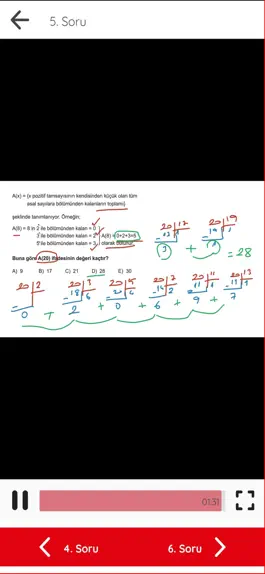 5. Soru
A(x) = {x pozitif tamsayısının kendisinden küçük olan tüm
asal sayılara bölümünden kalanların toplamı}
şeklinde tanımlanıyor. Örneğin;
A(8) = 8 in 2 ile bölümünden kalan = 0
3 ile bölümünden kalan = 2 A(8) = 0+2+3=5
5 ile bölümünden kalan = 3 olarak bulunur.
Buna göre A(20) ifadesinin değeri kaçtır?
A) 9 B) 17 C) 21 D) 28 E) 30
20 17
- 17 1
3
+
20 19
- 19 1
= 28
20 2
-
0
20 3
- 18 6
2
20 5
- 20 4
0
20 7
- 14 2
6
20 11
- 11 1
9
20 13
- 13 1
7
+ + + + +
01:31
4. Soru
6. Soru